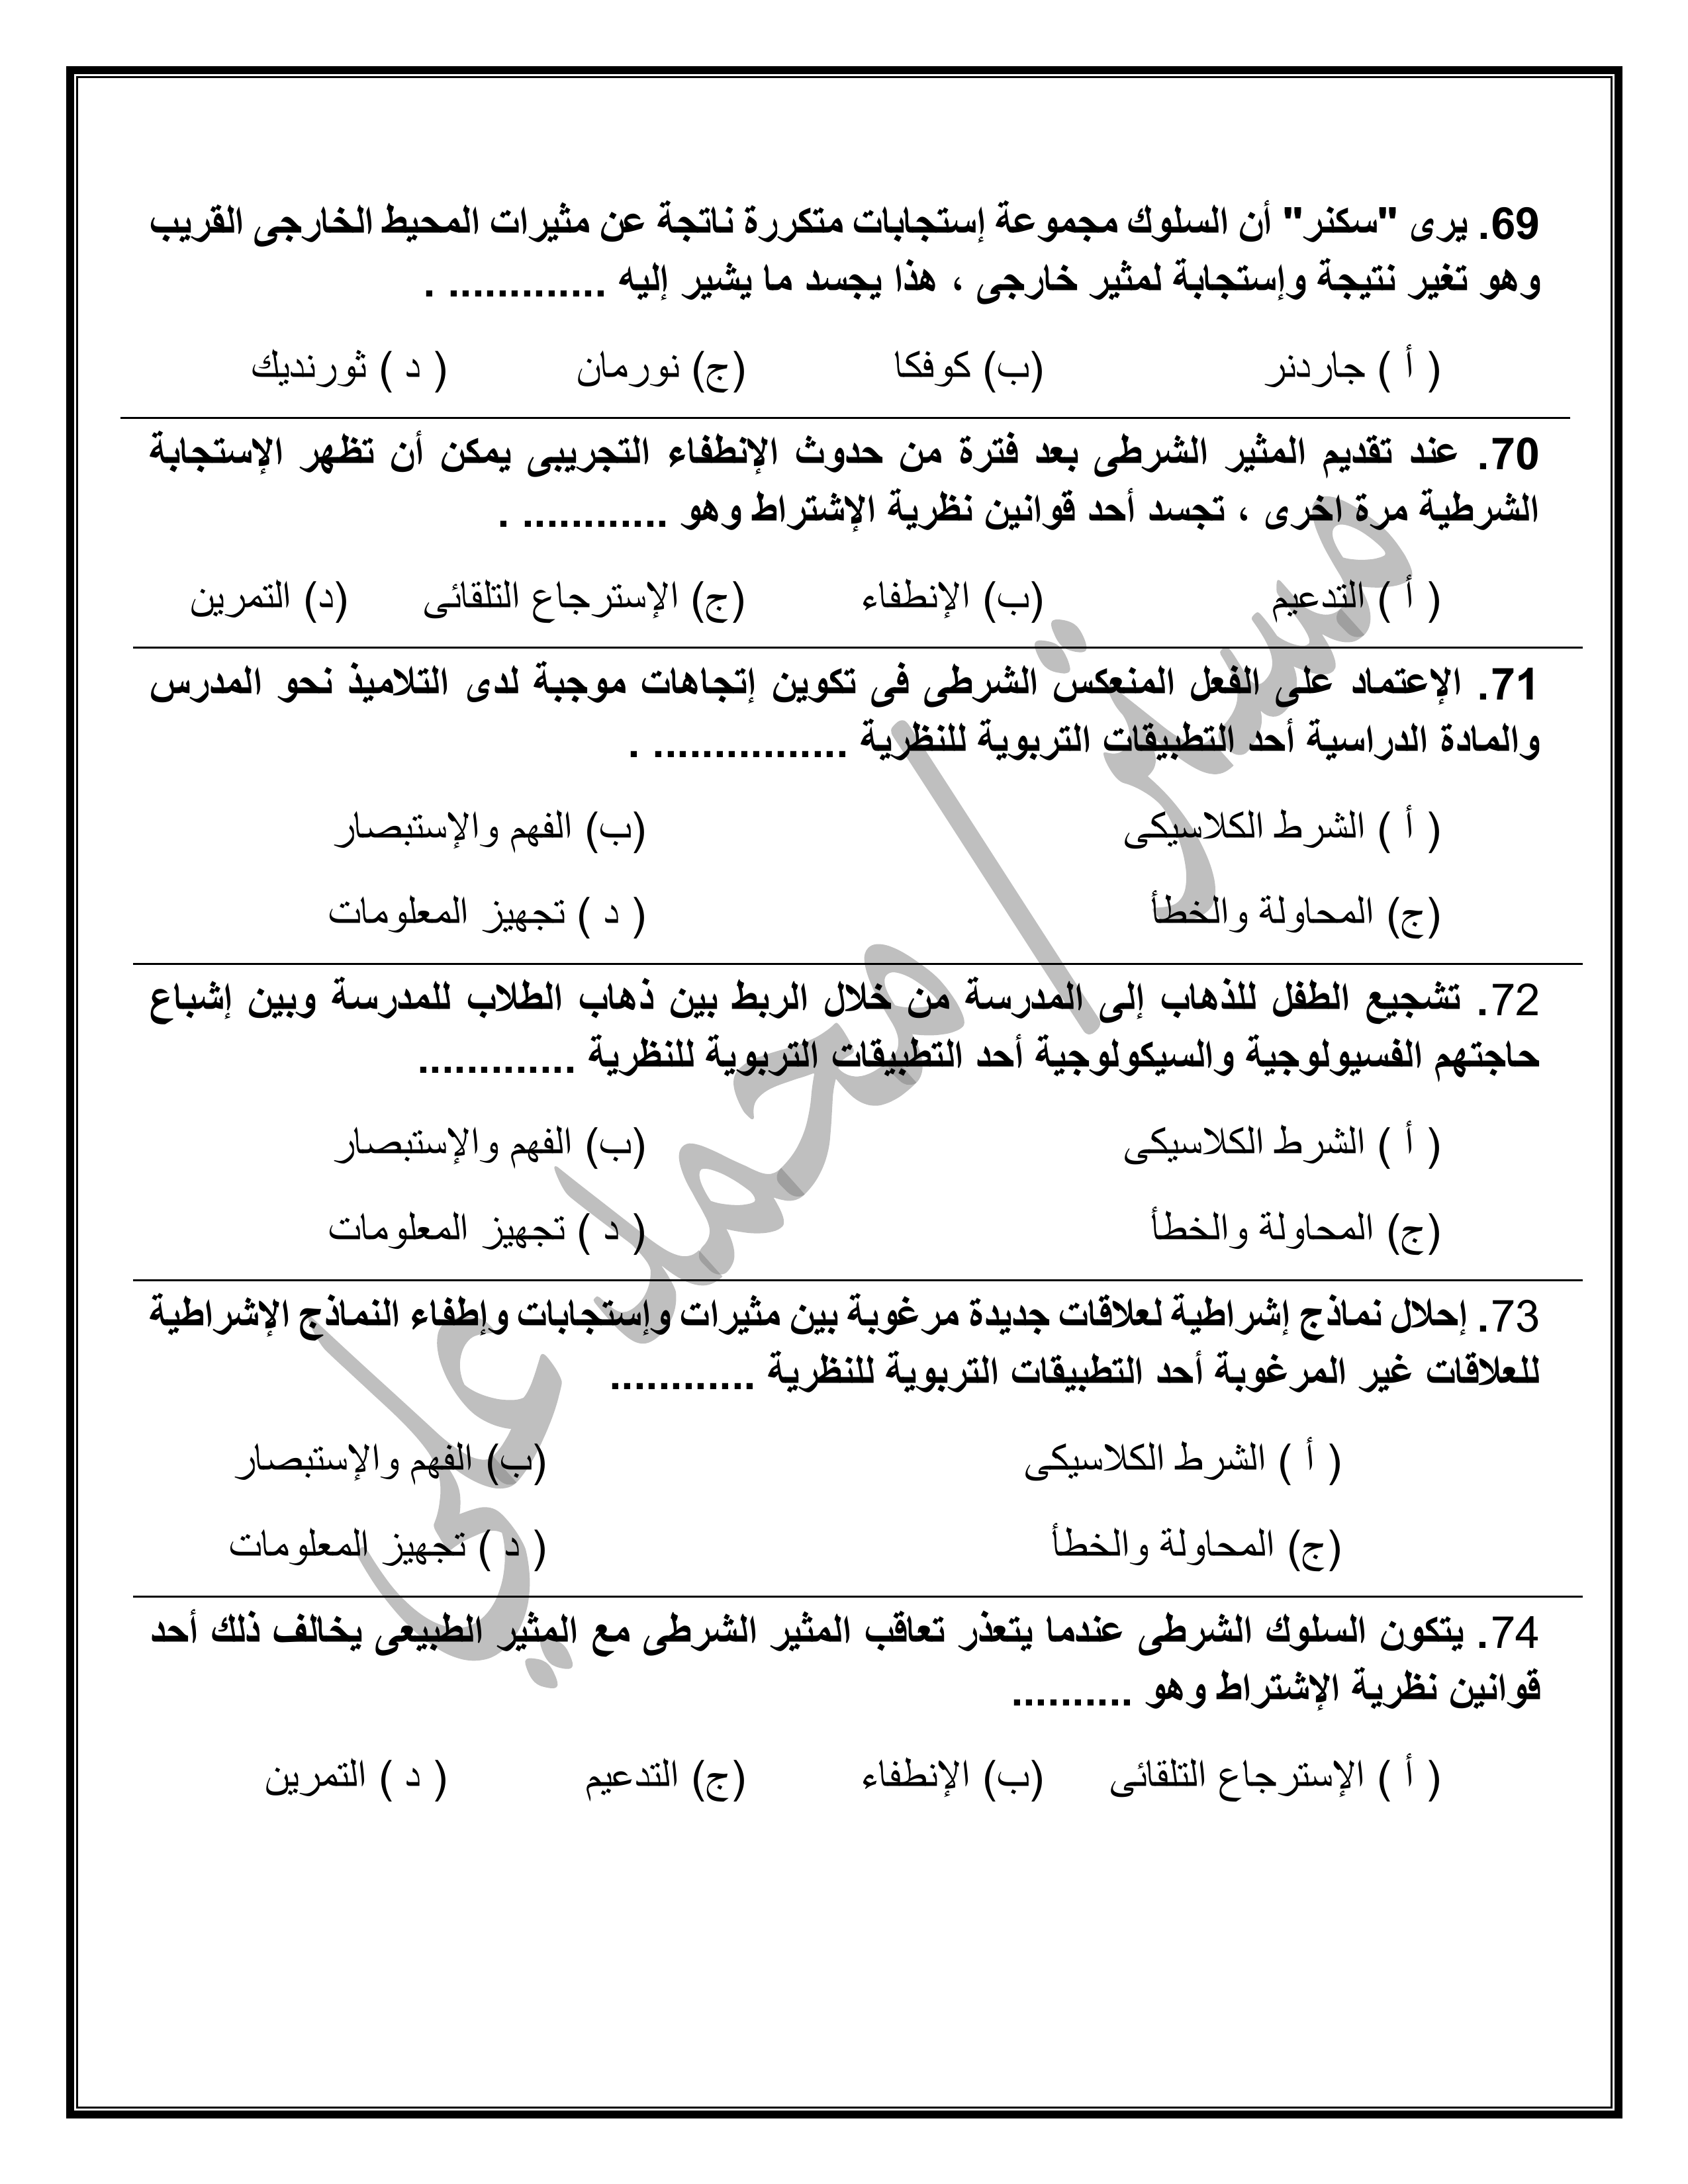 69. يرى "سكنر" أن السلوك مجموعة إستجابات متكررة ناتجة عن مثيرات المحيط الخارجى القريب
وهو تغير نتيجة وإستجابة لمثير خارجى ، هذا يجسد ما يشير إليه ............. .
( أ ) جاردنر (ب) كوفكا (ج) نورمان ( د ) ثورنديك
70. عند تقديم المثير الشرطى بعد فترة من حدوث الإنطفاء التجريبى يمكن أن تظهر الإستجابة
الشرطية مرة اخرى ، تجسد أحد قوانين نظرية الإشتراط وهو ............ .
( أ ) التدعيم (ب) الإنطفاء (ج) الإسترجاع التلقائى (د) التمرين
71. الإعتماد على الفعل المنعكس الشرطى فى تكوين إتجاهات موجبة لدى التلاميذ نحو المدرس
والمادة الدراسية أحد التطبيقات التربوية للنظرية ................ .
( أ ) الشرط الكلاسيكى (ب) الفهم والإستبصار
(ج) المحاولة والخطأ ( د ) تجهيز المعلومات
72. تشجيع الطفل للذهاب إلى المدرسة من خلال الربط بين ذهاب الطلاب للمدرسة وبين إشباع
حاجتهم الفسيولوجية والسيكولوجية أحد التطبيقات التربوية للنظرية .............
( أ ) الشرط الكلاسيكى (ب) الفهم والإستبصار
(ج) المحاولة والخطأ ( د ) تجهيز المعلومات
73. إحلال نماذج إشراطية لعلاقات جديدة مرغوبة بين مثيرات وإستجابات وإطفاء النماذج الإشراطية
للعلاقات غير المرغوبة أحد التطبيقات التربوية للنظرية ............
( أ ) الشرط الكلاسيكى (ب) الفهم والإستبصار
(ج) المحاولة والخطأ ( د ) تجهيز المعلومات
74. يتكون السلوك الشرطى عندما يتعذر تعاقب المثير الشرطى مع المثير الطبيعى يخالف ذلك أحد
قوانين نظرية الإشتراط وهو ..........
( أ ) الإسترجاع التلقائى (ب) الإنطفاء (ج) التدعيم ( د ) التمرين
مستر/ محمد علي